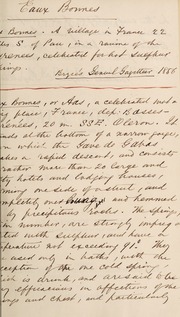 Eaux Bonnes
x Bonnes. A village in France 22
les S of Pau, in a ravine of the
renees, celebrated for hot sulphur
ings.
General Gazetteer 1856
x Bonnes, or Aas, a celebrated med
place, France, dep. Basses
renees, 20 m. S.S.E. Oleron. It
nds at the bottom of a narrow gorge,
on which the Gave de Gabas
akes a rapid descent, and consists
rather more than 20 large and
hotels and lodging houses,
ming one side of a street, and
mpletely and hemmed
by precipitous rocks. The springs,
in number, are strongly impreg
ted with sulphur, and have a
perature not exceeding 91°. They
used only in baths, with the
ception of one cold spring
ich is drunk, and are said to be
efficacious in affections of the
ngs and chest, and particularly